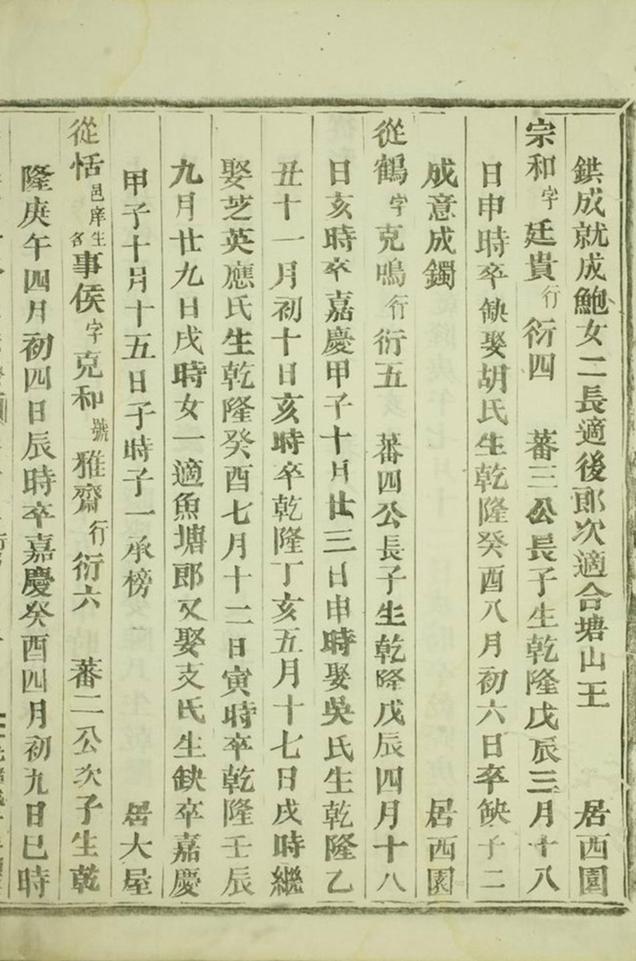 鉷成就成鮑女二長適後郎次適合塘山王 居西園
宗和字廷貴行衍四 蕃三公長子生乾隆戊辰三月十八
日申時卒缺娶胡氏生乾隆癸酉八月初六日卒缺子二
成意成鐲 居西園
從鶴字克鳴行衍五 蕃四公長子生乾隆戊辰四月十八
日亥時卒嘉慶甲子十月廿三日申時娶吳氏生乾隆乙
丑十一月初十日亥時卒乾隆丁亥五月十七日戌時繼
娶芝英應氏生乾隆癸酉七月十二日寅時卒乾隆壬辰
九月廿九日戌時女一適魚塘郎又娶支氏生缺卒嘉慶
甲子十月十五日子時子一承榜 居大屋
從恬邑庠生名事侯字克和號雅齋行衍六 蕃二公次子生乾
隆庚午四月初四日辰時卒嘉慶癸酉四月初九日巳時